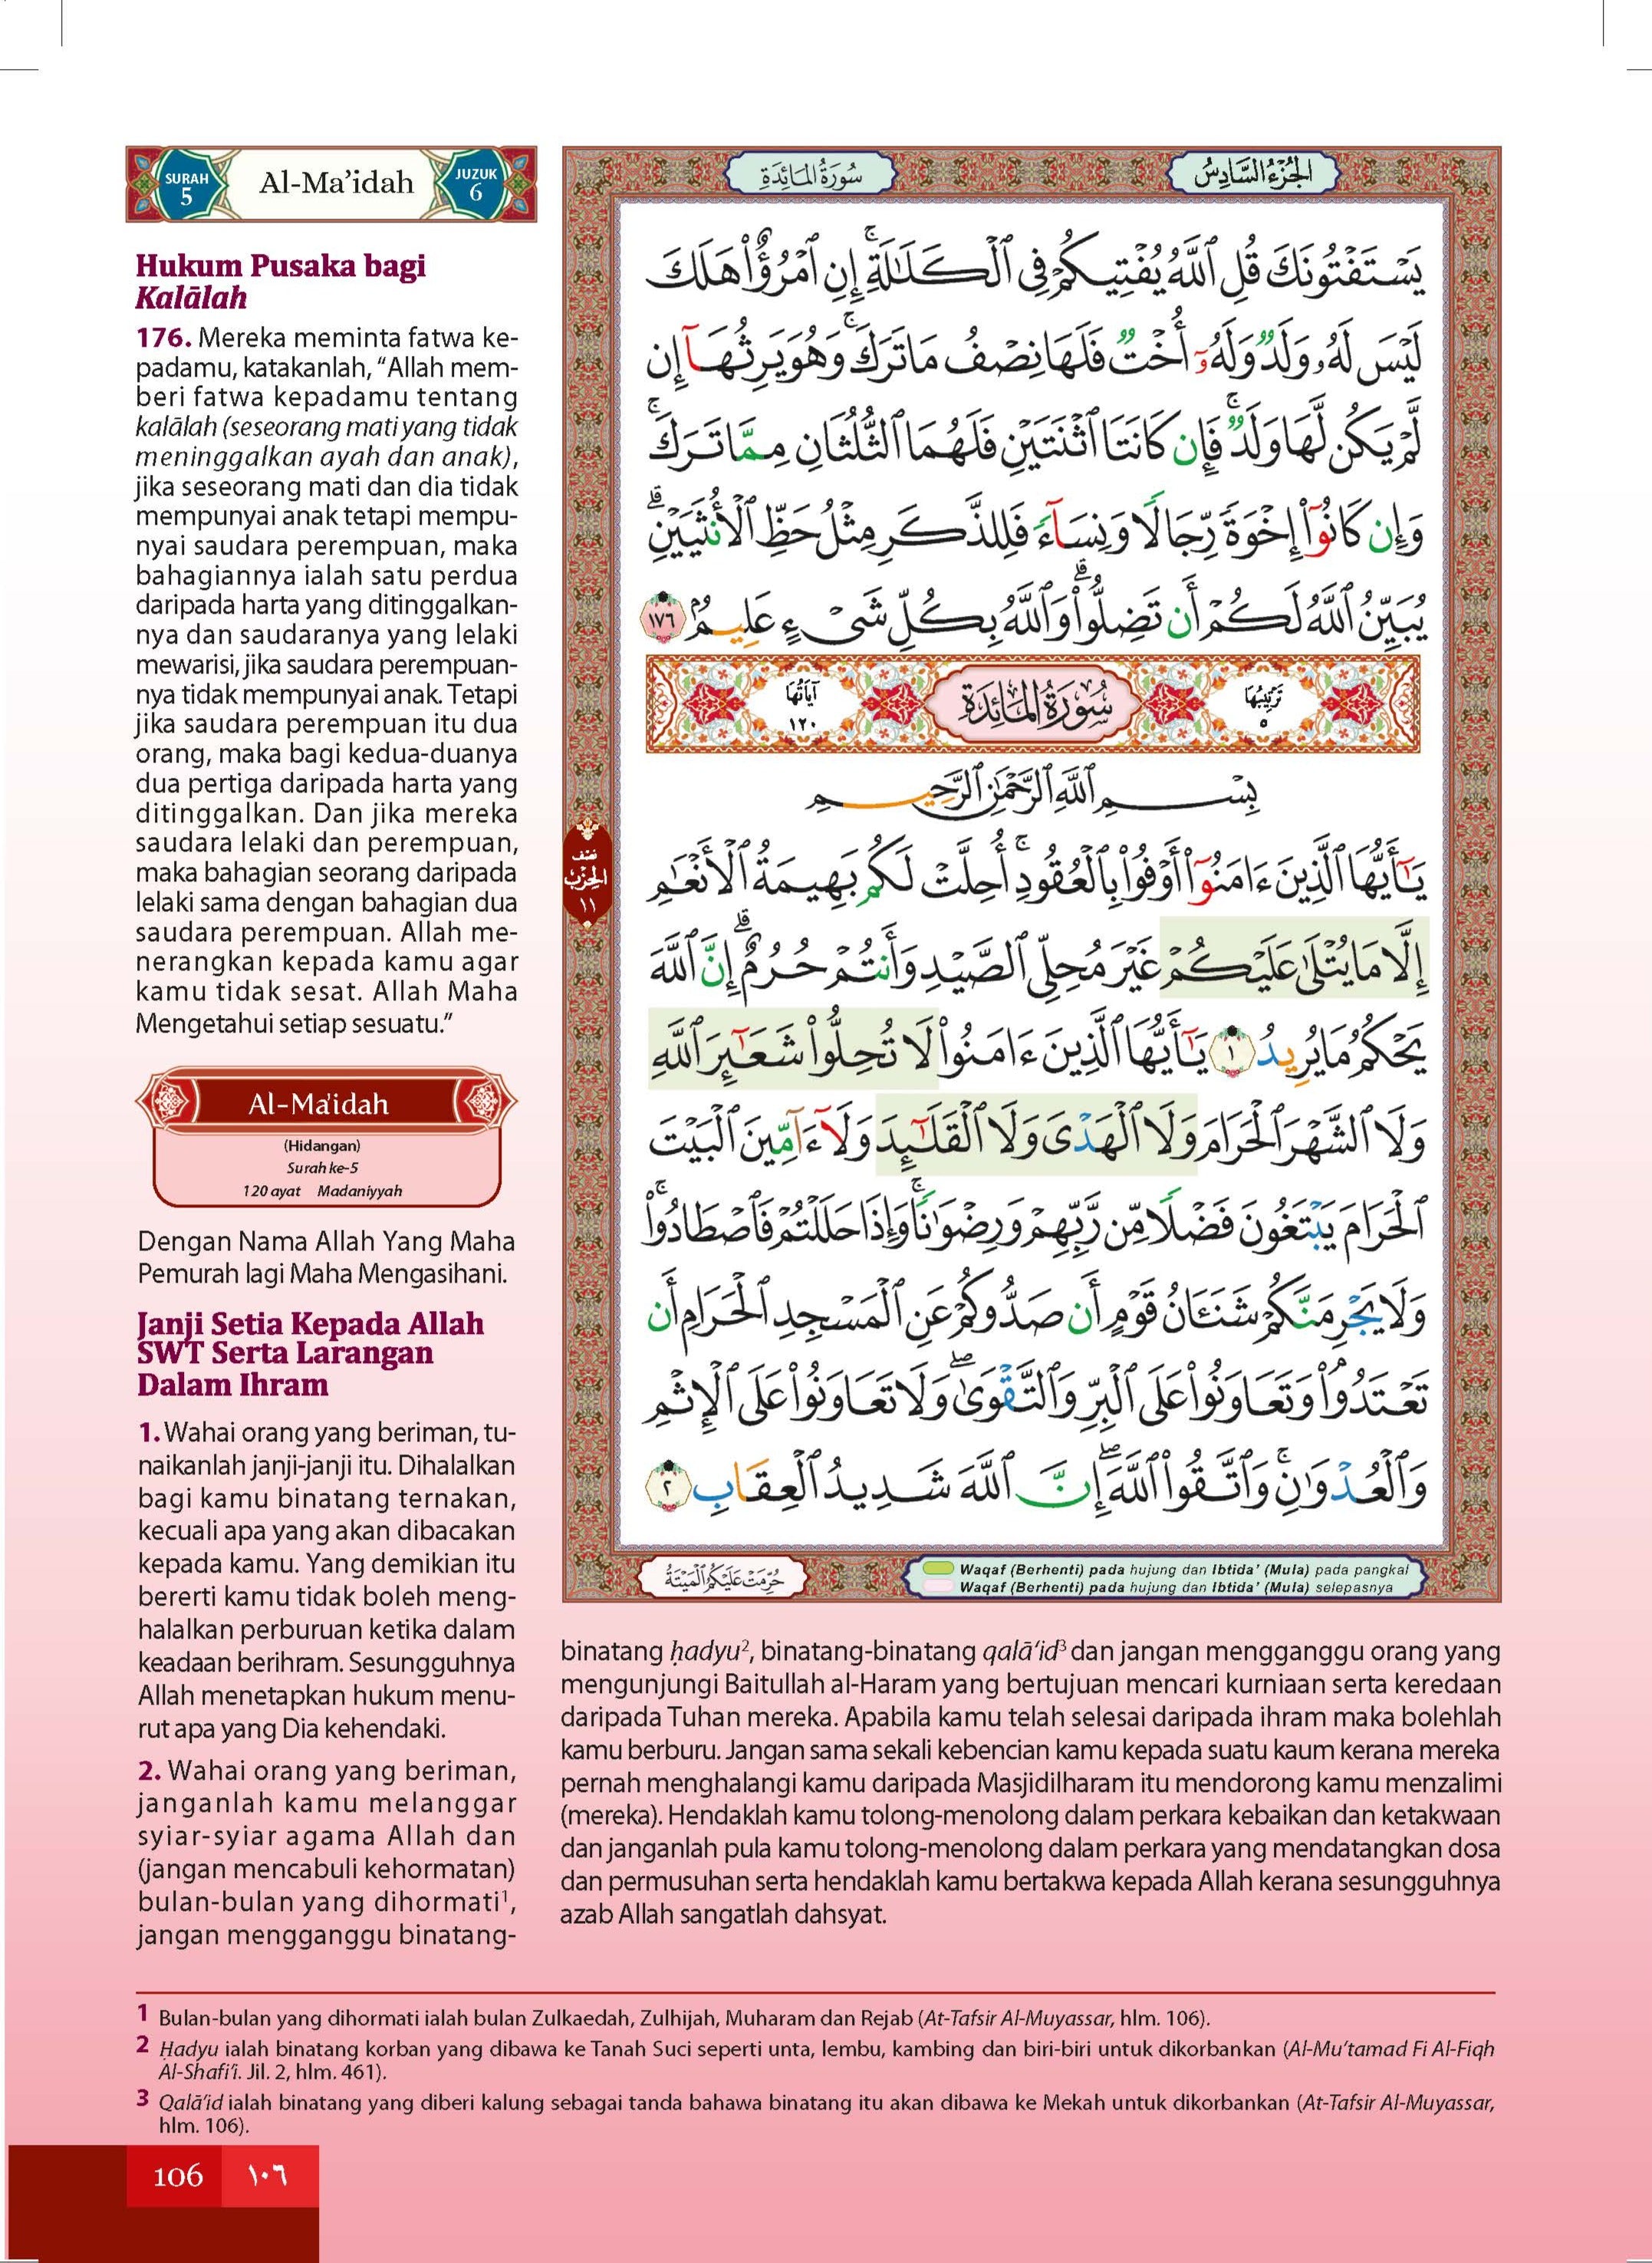 SURAH 5
Al-Ma’idah
JUZUK 6
Hukum Pusaka bagi
Kalālah
176. Mereka meminta fatwa ke-
padamu, katakanlah, “Allah mem-
beri fatwa kepadamu tentang
kalālah (seseorang mati yang tidak
meninggalkan ayah dan anak),
jika seseorang mati dan dia tidak
mempunyai anak tetapi mempu-
nyai saudara perempuan, maka
bahagiannya ialah satu perdua
daripada harta yang ditinggalkan-
nya dan saudaranya yang lelaki
mewarisi, jika saudara perempuan-
nya tidak mempunyai anak. Tetapi
jika saudara perempuan itu dua
orang, maka bagi kedua-duanya
dua pertiga daripada harta yang
ditinggalkan. Dan jika mereka
saudara lelaki dan perempuan,
maka bahagian seorang daripada
lelaki sama dengan bahagian dua
saudara perempuan. Allah me-
nerangkan kepada kamu agar
kamu tidak sesat. Allah Maha
Mengetahui setiap sesuatu.”
Al-Ma'idah
(Hidangan)
Surah ke-5
120 ayat Madaniyyah
Dengan Nama Allah Yang Maha
Pemurah lagi Maha Mengasihani.
Janji Setia Kepada Allah
SWT Serta Larangan
Dalam Ihram
1. Wahai orang yang beriman, tu-
naikanlah janji-janji itu. Dihalalkan
bagi kamu binatang ternakan,
kecuali apa yang akan dibacakan
kepada kamu. Yang demikian itu
bererti kamu tidak boleh meng-
halalkan perburuan ketika dalam
keadaan berihram. Sesungguhnya
Allah menetapkan hukum menu-
rut apa yang Dia kehendaki.
2. Wahai orang yang beriman,
janganlah kamu melanggar
syiar-syiar agama Allah dan
(jangan mencabuli kehormatan)
bulan-bulan yang dihormati¹,
jangan mengganggu binatang-
الجُزْءُ السَّادِسُ
سُورَةُ المَائِدَةِ
يَسْتَفْتُونَكَ قُلِ ٱللَّهُ يُفْتِيكُمْ فِى ٱلْكَلَـٰلَةِ ۚ إِنِ ٱمْرُؤٌا۟ هَلَكَ
لَيْسَ لَهُۥ وَلَدٌ وَلَهُۥٓ أُخْتٌ فَلَهَا نِصْفُ مَا تَرَكَ ۚ وَهُوَ يَرِثُهَآ إِن
لَّمْ يَكُن لَّهَا وَلَدٌ ۚ فَإِن كَانَتَا ٱثْنَتَيْنِ فَلَهُمَا ٱلثُّلُثَانِ مِمَّا تَرَكَ ۚ
وَإِن كَانُوٓا۟ إِخْوَةً رِّجَالًا وَنِسَآءً فَلِلذَّكَرِ مِثْلُ حَظِّ ٱلْأُنثَيَيْنِ ۗ
يُبَيِّنُ ٱللَّهُ لَكُمْ أَن تَضِلُّوا۟ ۗ وَٱللَّهُ بِكُلِّ شَىْءٍ عَلِيمٌۢ ١٧٦
تَرْتِيبُهَا ٥ سُورَةُ المَائِدَةِ آيَاتُهَا ١٢٠
بِسْمِ ٱللَّهِ ٱلرَّحْمَـٰنِ ٱلرَّحِيمِ
يَـٰٓأَيُّهَا ٱلَّذِينَ ءَامَنُوٓا۟ أَوْفُوا۟ بِٱلْعُقُودِ ۚ أُحِلَّتْ لَكُم بَهِيمَةُ ٱلْأَنْعَـٰمِ
إِلَّا مَا يُتْلَىٰ عَلَيْكُمْ غَيْرَ مُحِلِّى ٱلصَّيْدِ وَأَنتُمْ حُرُمٌ ۗ إِنَّ ٱللَّهَ
يَحْكُمُ مَا يُرِيدُ ١ يَـٰٓأَيُّهَا ٱلَّذِينَ ءَامَنُوا۟ لَا تُحِلُّوا۟ شَعَـٰٓئِرَ ٱللَّهِ
وَلَا ٱلشَّهْرَ ٱلْحَرَامَ وَلَا ٱلْهَدْىَ وَلَا ٱلْقَلَـٰٓئِدَ وَلَآ ءَآمِّينَ ٱلْبَيْتَ
ٱلْحَرَامَ يَبْتَغُونَ فَضْلًا مِّن رَّبِّهِمْ وَرِضْوَٰنًا ۚ وَإِذَا حَلَلْتُمْ فَٱصْطَادُوا۟ ۚ
وَلَا يَجْرِمَنَّكُمْ شَنَـَٔانُ قَوْمٍ أَن صَدُّوكُمْ عَنِ ٱلْمَسْجِدِ ٱلْحَرَامِ أَن
تَعْتَدُوا۟ ۘ وَتَعَاوَنُوا۟ عَلَى ٱلْبِرِّ وَٱلتَّقْوَىٰ ۖ وَلَا تَعَاوَنُوا۟ عَلَى ٱلْإِثْمِ
وَٱلْعُدْوَٰنِ ۚ وَٱتَّقُوا۟ ٱللَّهَ ۖ إِنَّ ٱللَّهَ شَدِيدُ ٱلْعِقَابِ ٢
نصف
الحزب
١١
حُرِّمَتْ عَلَيْكُمُ الْمَيْتَةُ
Waqaf (Berhenti) pada hujung dan Ibtida’ (Mula) pada pangkal
Waqaf (Berhenti) pada hujung dan Ibtida’ (Mula) selepasnya
binatang ḥadyu², binatang-binatang qalā’id³ dan jangan mengganggu orang yang
mengunjungi Baitullah al-Haram yang bertujuan mencari kurniaan serta keredaan
daripada Tuhan mereka. Apabila kamu telah selesai daripada ihram maka bolehlah
kamu berburu. Jangan sama sekali kebencian kamu kepada suatu kaum kerana mereka
pernah menghalangi kamu daripada Masjidilharam itu mendorong kamu menzalimi
(mereka). Hendaklah kamu tolong-menolong dalam perkara kebaikan dan ketakwaan
dan janganlah pula kamu tolong-menolong dalam perkara yang mendatangkan dosa
dan permusuhan serta hendaklah kamu bertakwa kepada Allah kerana sesungguhnya
azab Allah sangatlah dahsyat.
1 Bulan-bulan yang dihormati ialah bulan Zulkaedah, Zulhijah, Muharam dan Rejab (At-Tafsir Al-Muyassar, hlm. 106).
2 Ḥadyu ialah binatang korban yang dibawa ke Tanah Suci seperti unta, lembu, kambing dan biri-biri untuk dikorbankan (Al-Mu’tamad Fi Al-Fiqh
Al-Shafi’i. Jil. 2, hlm. 461).
3 Qalā’id ialah binatang yang diberi kalung sebagai tanda bahawa binatang itu akan dibawa ke Mekah untuk dikorbankan (At-Tafsir Al-Muyassar,
hlm. 106).
106 ١٠٦